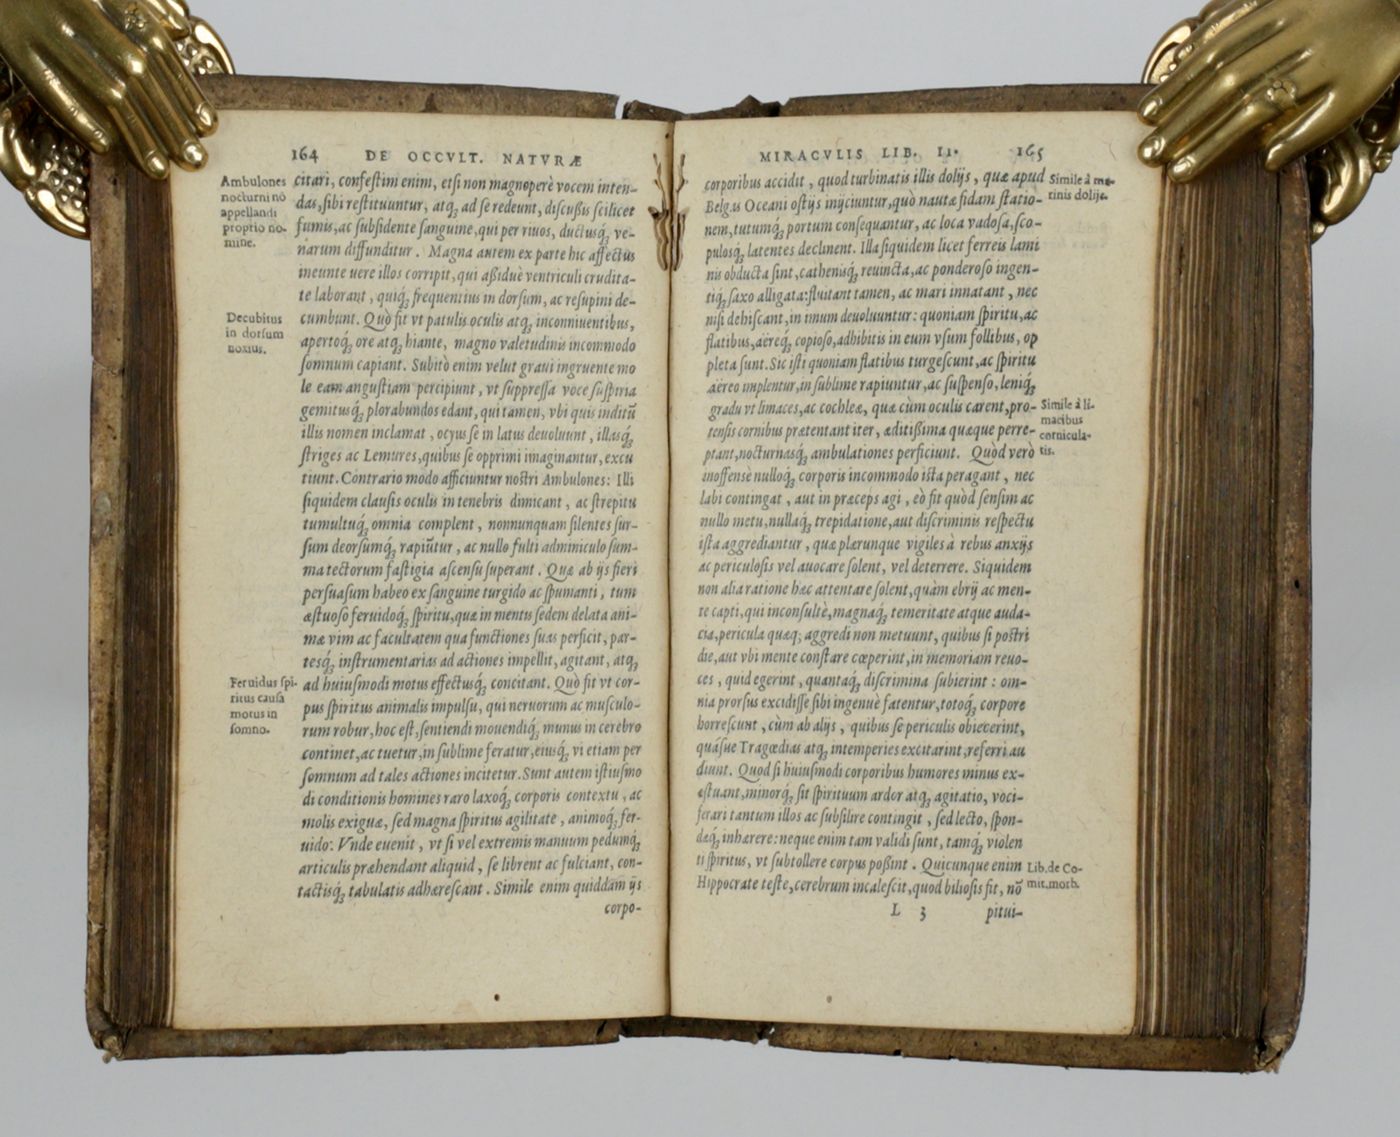 164 DE OCCVLT. NATVRÆ
Ambulones
nocturni nō
appellandi
proprio no-
mine.
citari, confestim enim, etsi non magnoperè vocem inten-
das, sibi restituuntur, atq; ad se redeunt, discußis scilicet
fumis, ac subsidente sanguine, qui per riuos, ductusq; ve-
narum diffunditur. Magna autem ex parte hic affectus
ineunte uere illos corripit, qui aßiduè ventriculi crudita-
te laborant, quiq; frequentius in dorsum, ac resupini de-
Decubitus
in dorsum
noxius.
cumbunt. Quò fit vt patulis oculis atq; inconniuentibus,
apertoq; ore atq; hiante, magno valetudinis incommodo
somnum capiant. Subitò enim velut graui ingruente mo
le eam angustiam percipiunt, vt suppressa voce suspiria
gemitusq; plorabundos edant, qui tamen, vbi quis inditū
illis nomen inclamat, ocyus se in latus deuoluunt, illasq;
striges ac Lemures, quibus se opprimi imaginantur, excu
tiunt. Contrario modo afficiuntur nostri Ambulones: Illi
siquidem clausis oculis in tenebris dimicant, ac strepitu
tumultuq; omnia complent, nonnunquam silentes sur-
sum deorsumq; rapiūtur, ac nullo fulti adminiculo sum-
ma tectorum fastigia ascensu superant. Quæ ab ijs fieri
persuasum habeo ex sanguine turgido ac spumanti, tum
æstuoso feruidoq; spiritu, quæ in mentis sedem delata ani-
mæ vim ac facultatem qua functiones suas perficit, par-
tesq; instrumentarias ad actiones impellit, agitant, atq;
Feruidus spi-
ritus causa
motus in
somno.
ad huiusmodi motus effectusq; concitant. Quò fit vt cor-
pus spiritus animalis impulsu, qui neruorum ac musculo-
rum robur, hoc est, sentiendi mouendiq; munus in cerebro
continet, ac tuetur, in sublime feratur, eiusq; vi etiam per
somnum ad tales actiones incitetur. Sunt autem istiusmo
di conditionis homines raro laxoq; corporis contextu, ac
molis exiguæ, sed magna spiritus agilitate, animoq; fer-
uido. Vnde euenit, vt si vel extremis manuum pedumq;
articulis præhendant aliquid, se librent ac fulciant, con-
tactisq; tabulatis adhærescant. Simile enim quiddam ijs
corpo-
MIRACVLIS LIB. II. 165
corporibus accidit, quod turbinatis illis dolijs, quæ apud
Simile à ma-
rinis dolijs.
Belgas Oceani ostijs inijciuntur, quò nautæ fidam statio-
nem, tutumq; portum consequantur, ac loca vadosa, sco-
pulosq; latentes declinent. Illa siquidem licet ferreis lami
nis obducta sint, cathenisq; reuincta, ac ponderoso ingen-
tiq; saxo alligata: fluitant tamen, ac mari innatant, nec
nisi dehiscant, in imum deuoluuntur: quoniam spiritu, ac
flatibus, aëreq; copioso, adhibitis in eum vsum follibus, op
pleta sunt. Sic isti quoniam flatibus turgescunt, ac spiritu
aëreo implentur, in sublime rapiuntur, ac suspenso, leniq;
gradu vt limaces, ac cochleæ, quæ cùm oculis carent, pro-
Simile à li-
macibus
cornicula-
tis.
tensis cornibus prætentant iter, æditißima quæque perre-
ptant, nocturnasq; ambulationes perficiunt. Quòd verò
inoffensè nulloq; corporis incommodo ista peragant, nec
labi contingat, aut in præceps agi, eò fit quòd sensim ac
nullo metu, nullaq; trepidatione, aut discriminis respectu
ista aggrediantur, quæ plærunque vigiles à rebus anxijs
ac periculosis vel auocare solent, vel deterrere. Siquidem
non alia ratione hæc attentare solent, quàm ebrij ac men-
te capti, qui inconsultè, magnaq; temeritate atque auda-
cia, pericula quæq; aggredi non metuunt, quibus si postri
die, aut vbi mente constare cœperint, in memoriam reuo-
ces, quid egerint, quantaq; discrimina subierint: om-
nia prorsus excidisse sibi ingenuè fatentur, totoq; corpore
horrescunt, cùm ab alijs, quibus se periculis obiecerint,
quásue Tragœdias atq; intemperies excitarint, referri au
diunt. Quod si huiusmodi corporibus humores minus ex-
æstuant, minorq; sit spirituum ardor atq; agitatio, voci-
ferari tantum illos ac subsilire contingit, sed lecto, spon-
dæq; inhærere: neque enim tam validi sunt, tamq; violen
ti spiritus, vt subtollere corpus poßint. Quicunque enim
Lib. de Co-
mit. morb.
Hippocrate teste, cerebrum incalescit, quod biliosis fit, nō
L 3 pitui-